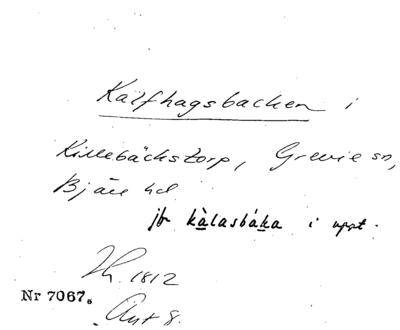 Kalfhagsbacken i
Killebäckstorp, Grevie sn,
Bjäre hd
jfr kàlasbáka i uppt.
1812
Nr 7067.
Akt 8.